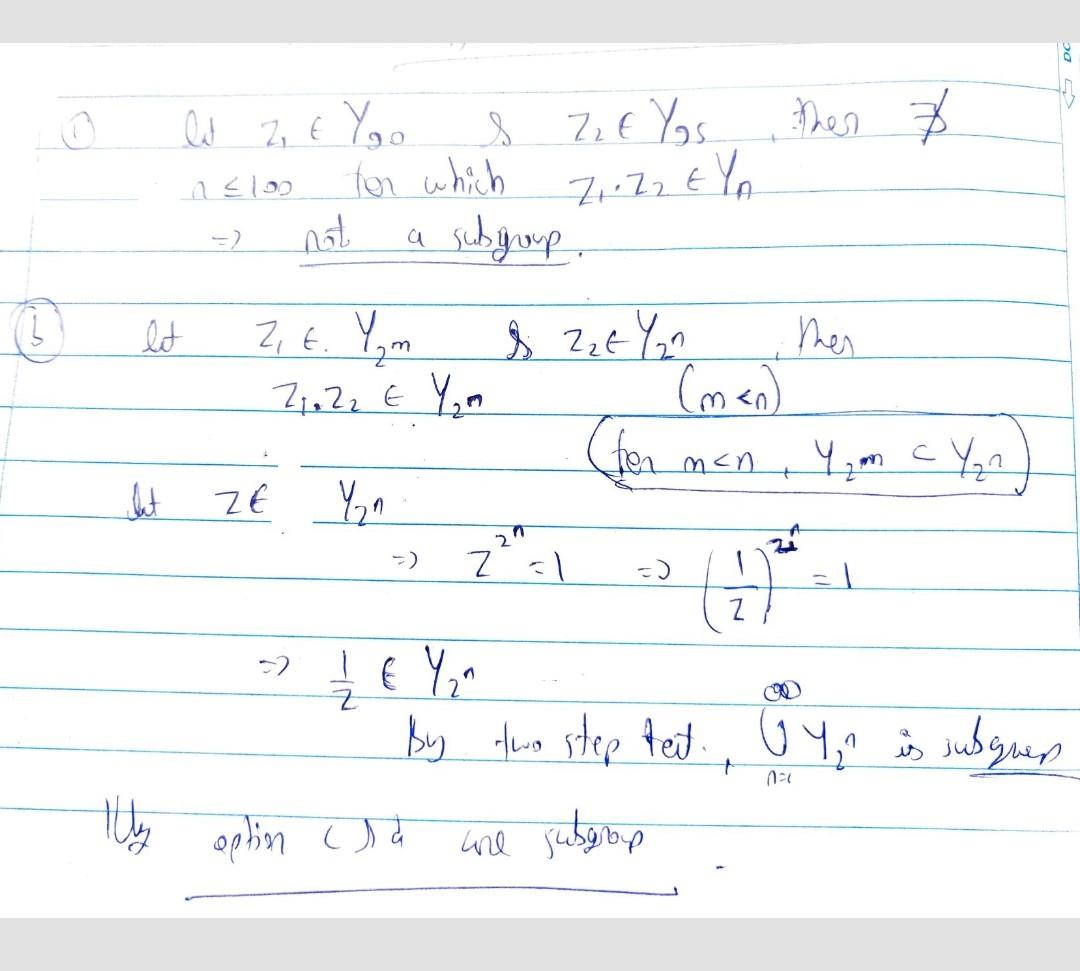 ① let Z₁ ∈ Y₉₀ & Z₂ ∈ Y₉₅, then ∄
n ≤ 100 for which Z₁.Z₂ ∈ Yₙ
=> not a subgroup.
ⓑ let Z₁ ∈. Y₂m & Z₂ ∈ Y₂n, then
Z₁.Z₂ ∈ Y₂n (m < n)
(for m<n, Y₂m ⊂ Y₂n)
let Z ∈ Y₂n
=> Z^2^n = 1 => (1/Z)^2^n = 1
=> 1/Z ∈ Y₂n
∞
By two step test, ∪ Y₂n is subgroup
n=1
|||ly option c, d are subgroup.